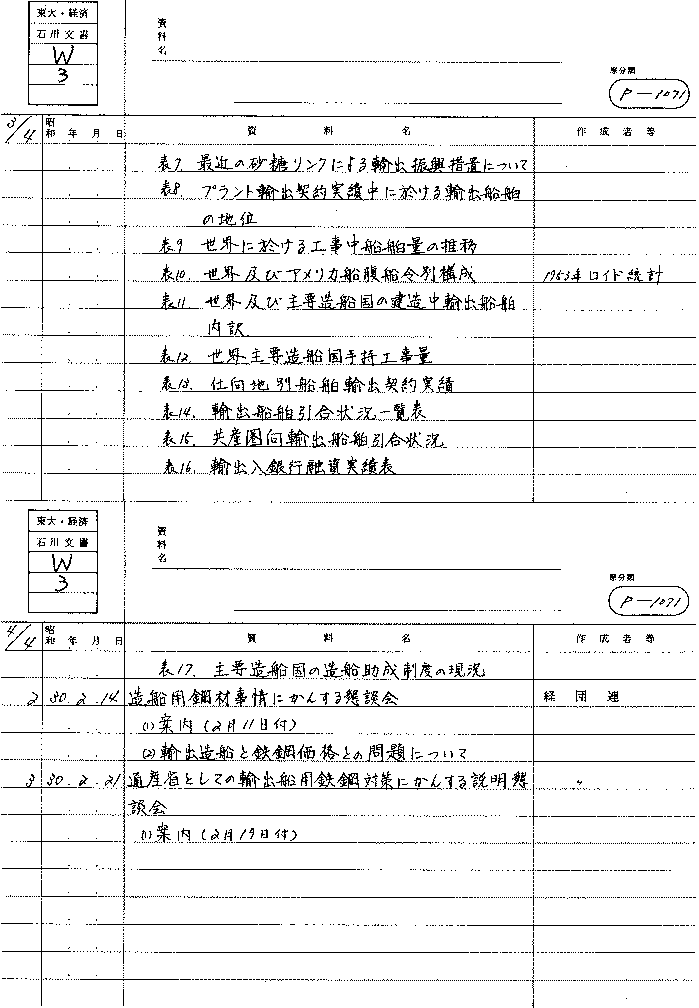 東大・経済
石川文書
W
3
資料名
原分類
P-1071
3/4
昭和 年 月 日
資 料 名
作 成 者 等
表7. 最近の砂糖リンクによる輸出振興措置について
表8. プラント輸出契約実績中に於ける輸出船舶
の地位
表9 世界に於ける工事中船舶量の推移
表10. 世界及びアメリカ船腹船令別構成 1953年ロイド統計
表11. 世界及び主要造船国の建造中輸出船舶
内訳
表12. 世界主要造船国手持工事量
表13. 仕向地別船舶輸出契約実績
表14. 輸出船舶引合状況一覧表
表15. 共産圏向輸出船舶引合状況
表16. 輸出入銀行融資実績表
東大・経済
石川文書
W
3
資料名
原分類
P-1071
4/4
昭和 年 月 日
資 料 名
作 成 者 等
表17. 主要造船国の造船助成制度の現況
2 30. 2. 14 造船用鋼材事情にかんする懇談会 経団連
(1) 案内(2月11日付)
(2) 輸出造船と鉄鋼価格との問題について
3 30. 2. 21 通産省としての輸出船用鉄鋼対策にかんする説明懇 〃
談会
(1) 案内(2月19日付)